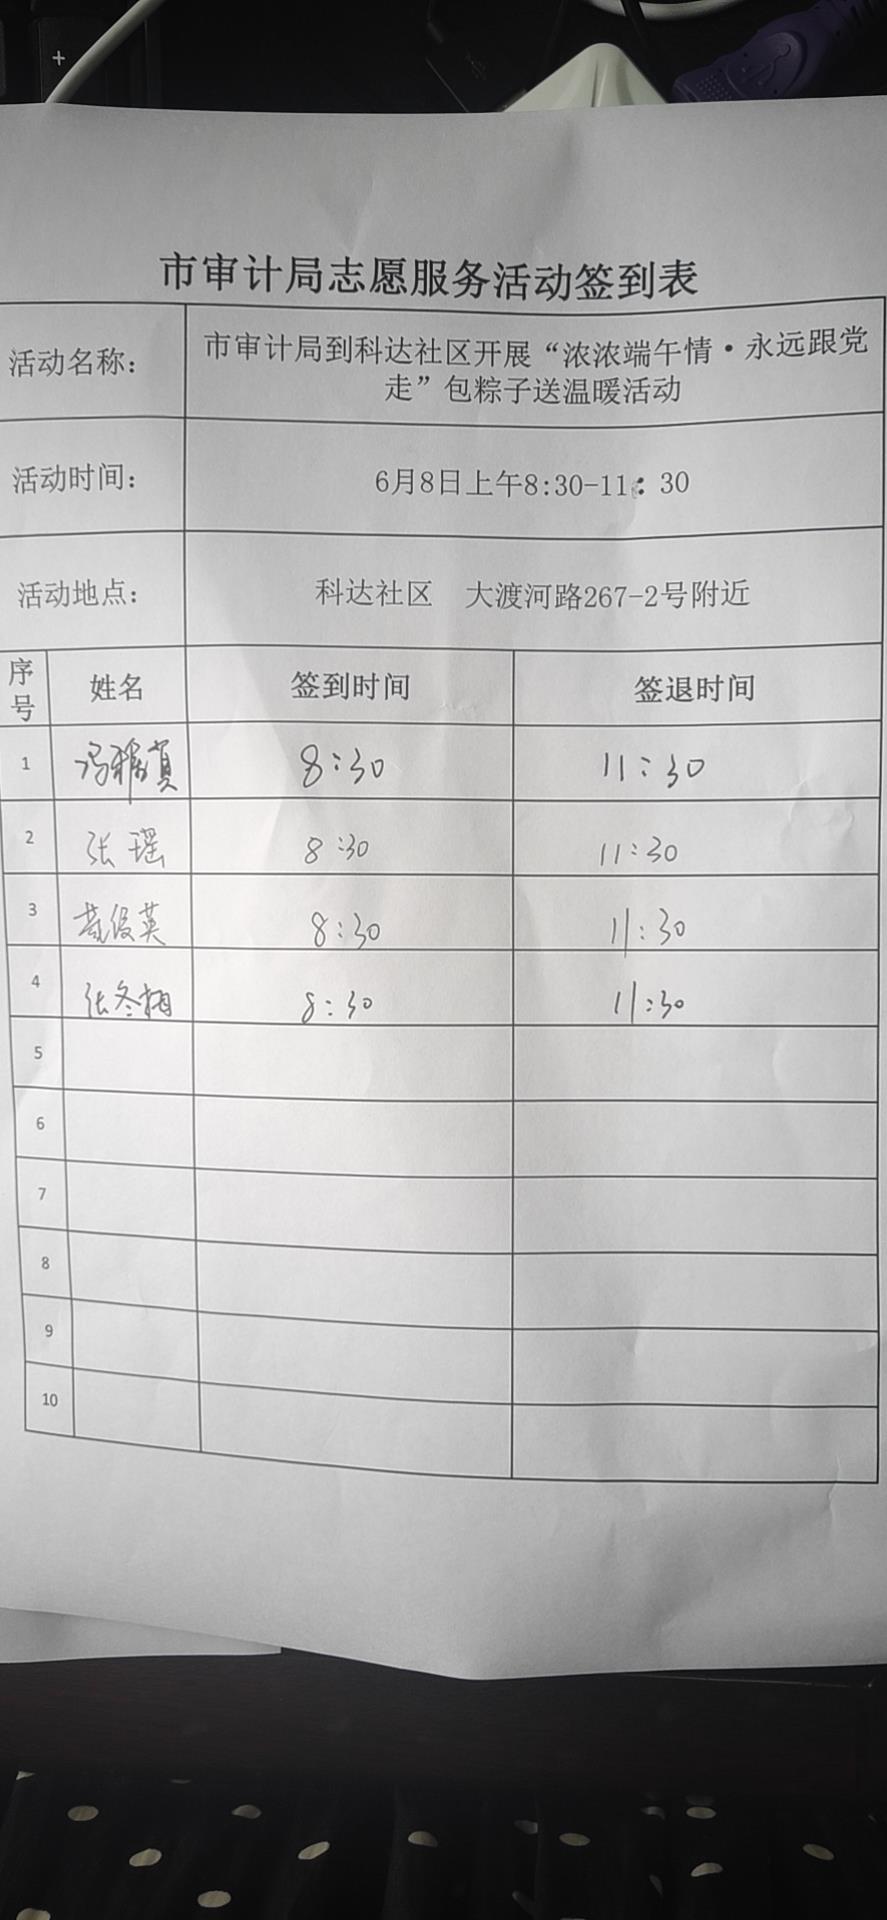 市审计局志愿服务活动签到表
活动名称：
市审计局到科达社区开展“浓浓端午情·永远跟党
走”包粽子送温暖活动
活动时间： 6月8日上午8:30-11：30
活动地点： 科达社区 大渡河路267-2号附近
序号 姓名 签到时间 签退时间
1 冯 8:30 11:30
2 张瑶 8:30 11:30
3 俊英 8:30 11:30
4 张冬梅 8:30 11:30
5
6
7
8
9
10